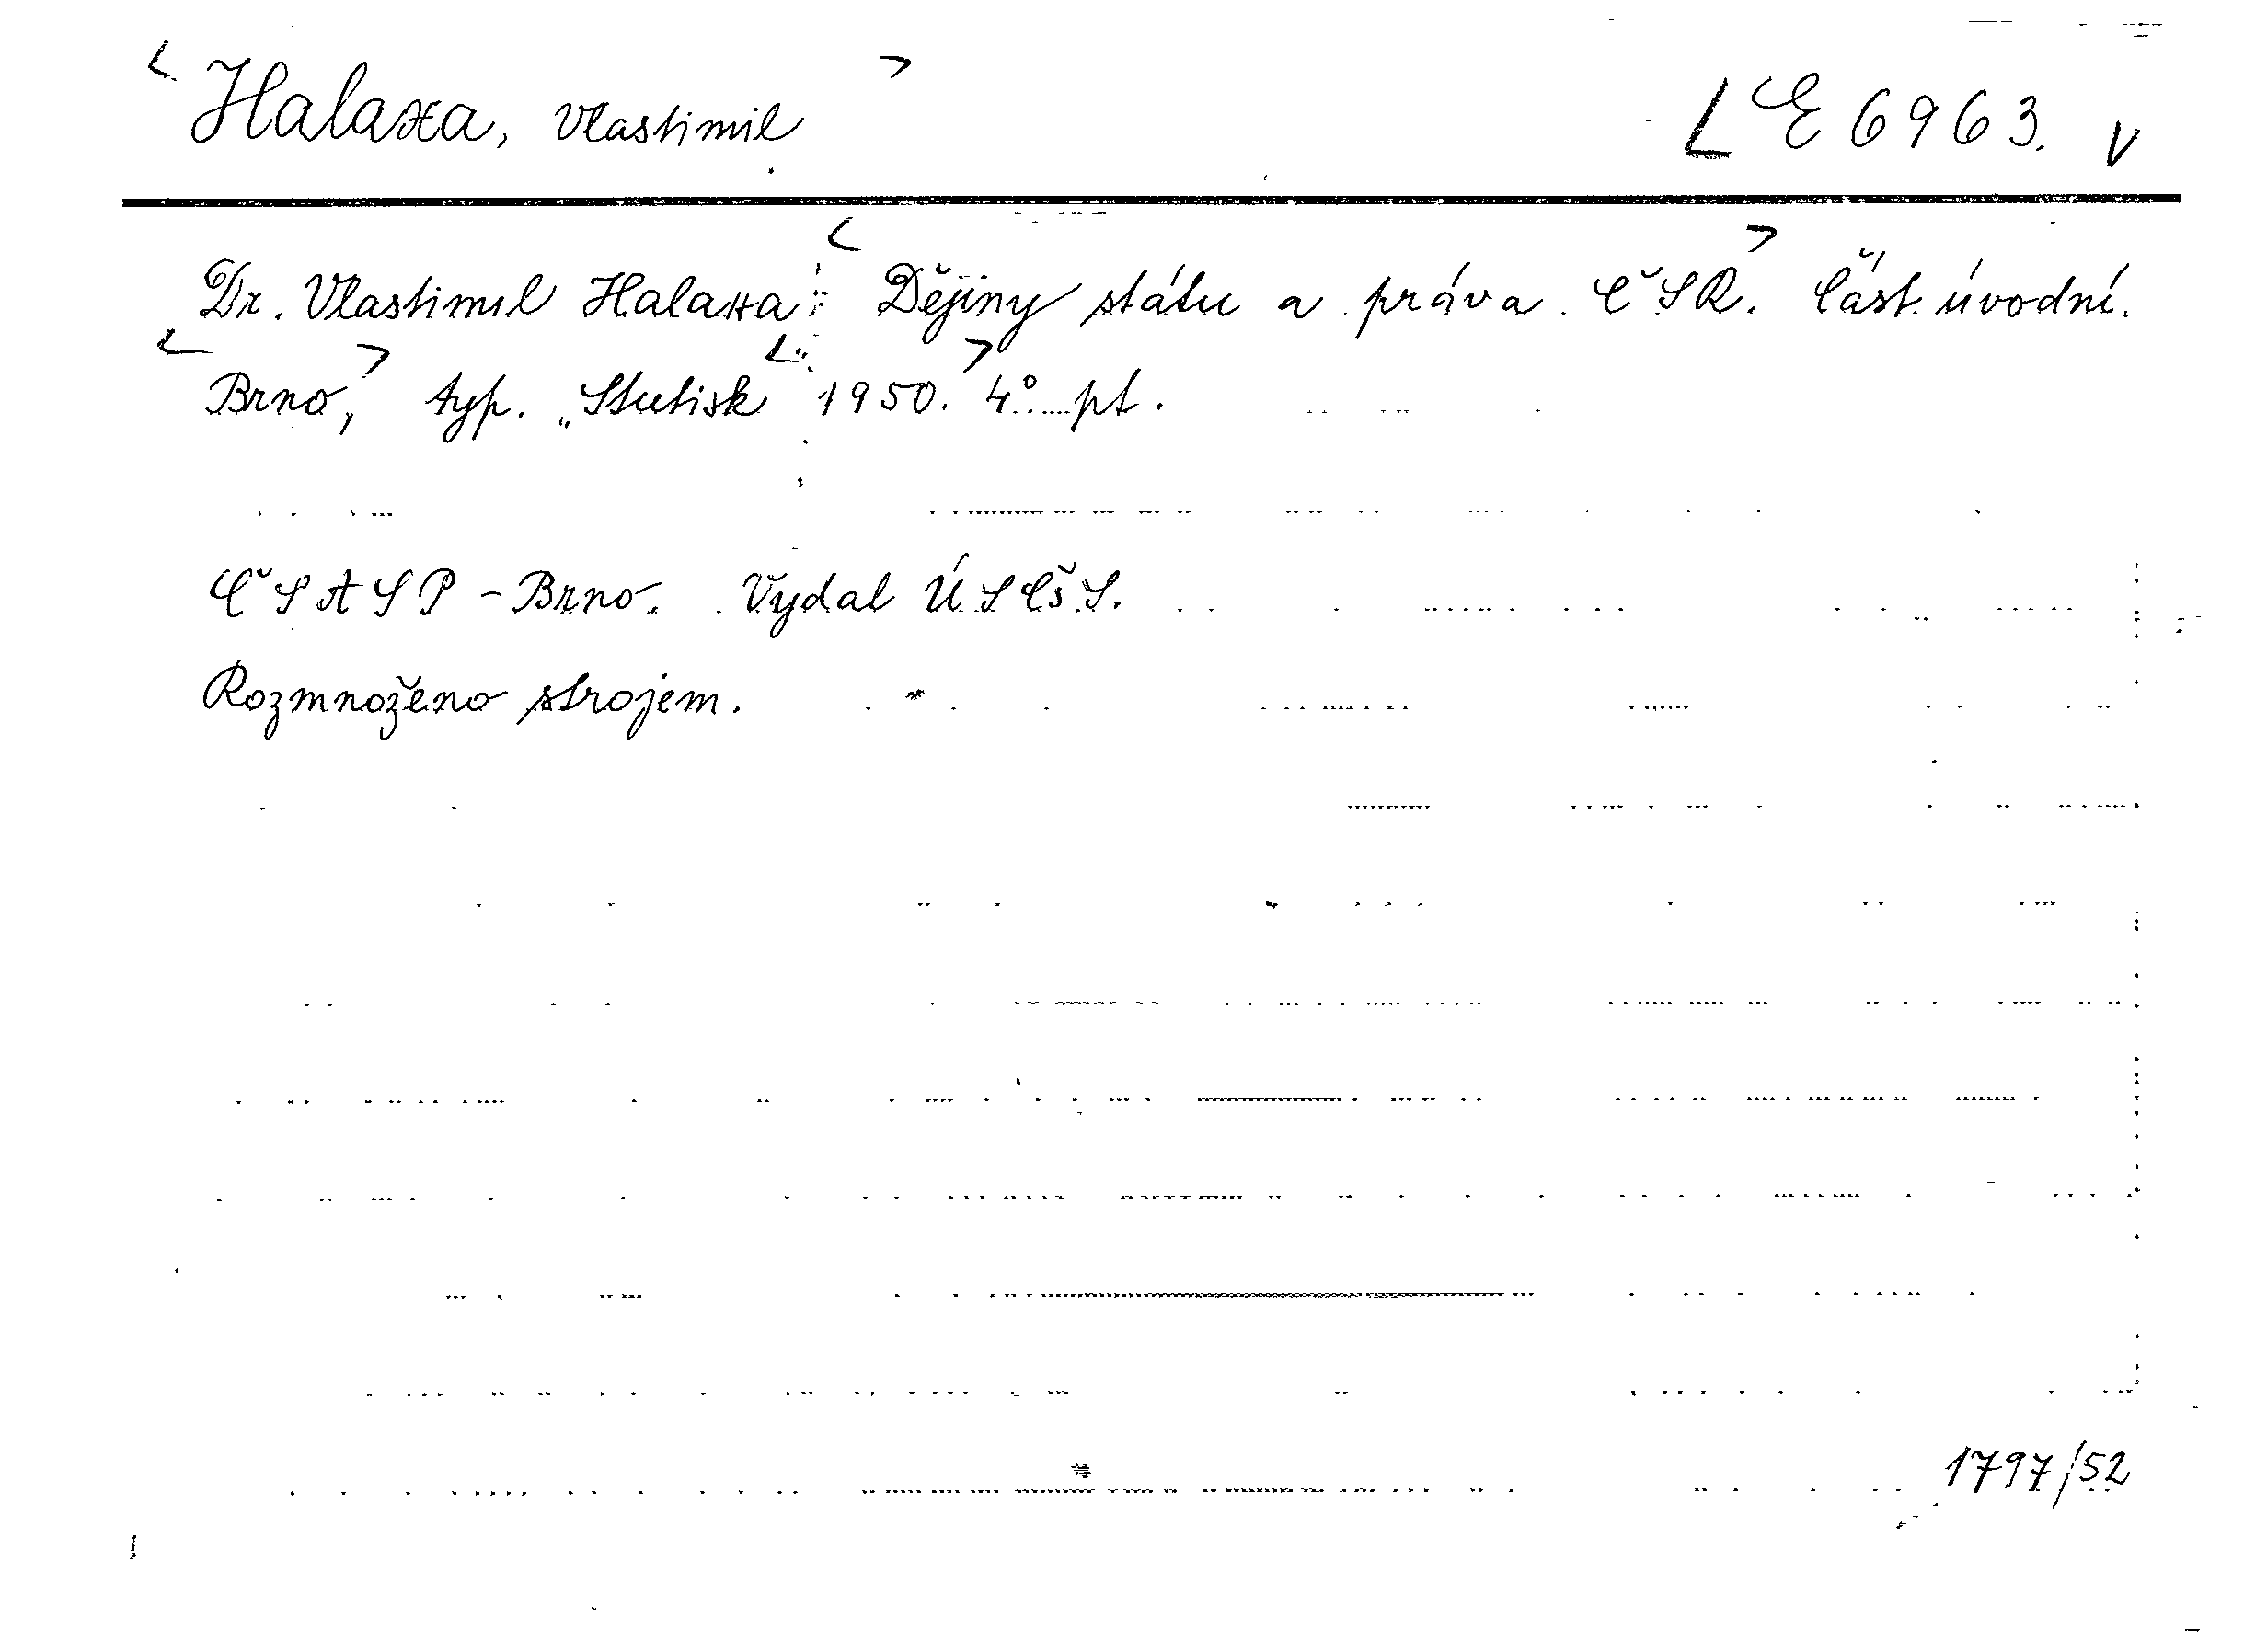 Halaxa, Vlastimil E 6963.
Dr. Vlastimil Halaxa: Dějiny státu a práva ČSR. Část úvodní.
Brno, typ. „Stutisk“ 1950. 4° pt.
ČSASP - Brno. Vydal ÚSČšS.
Rozmnoženo strojem.
1797/52